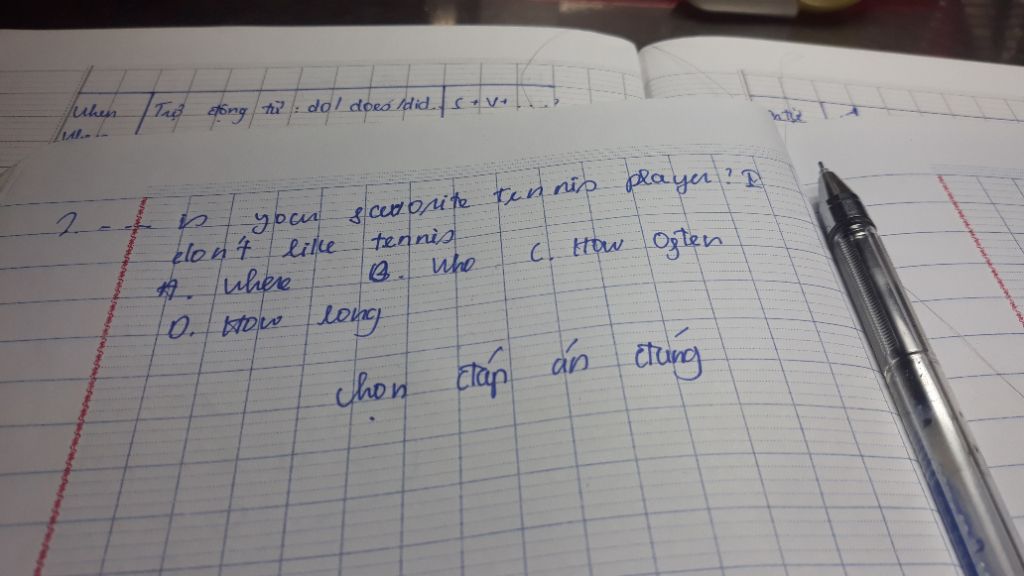 When Trợ động từ : do/ does/did S + V + ....?
2 --- is your favorite tennis player? I
don't like tennis
A. Where B. Who C. How Often
D. How long
chọn đáp án đúng